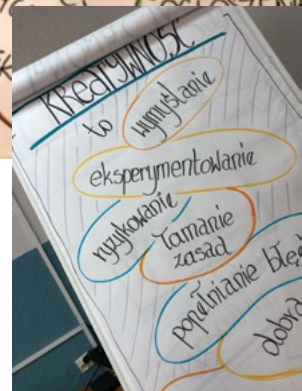 KREATYWNOŚĆ
to wymyślanie
eksperymentowanie
ryzykowanie
łamanie
zasad
popełnianie błęd
dobra